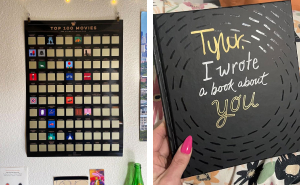 TOP 100 MOVIES
Tyler,
I wrote
a book about
you